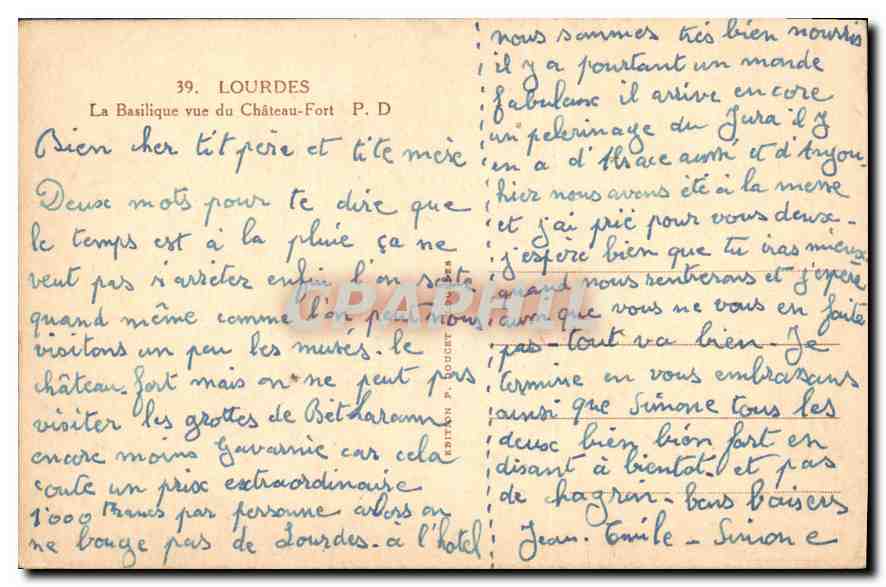 39. LOURDES
La Basilique vue du Château-Fort P. D
Bien cher tit père et tite mère
Deux mots pour te dire que
le temps est à la pluie ça ne
veut pas s'arrêter enfin l'on sorte
quand même comme l'on peut nous
visitons un peu les musés. le
château-fort mais on ne peut pas
visiter les grottes de Bétharam
encore moins Gavarnie car cela
coute un prix extraordinaire
1'000 Francs par personne alors on
ne bouge pas de Lourdes. à l'hotel
EDITION P. DOUCET
nous sommes très bien nourris
il y a pourtant un monde
fabulaux il arrive encore
un pelerinage du Jura il y
en a d'Alsace aussi et d'Anjou.
hier nous avons été à la messe
et j'ai prié pour vous deux-
j'espère bien que tu iras mieux
quand nous rentrerons et j'espère
aussi que vous ne vous en faite
pas- tout va bien. Je
termine en vous embrassans
ainsi que Simone tous les
deux bien bien fort en
disant à bientot. et pas
de chagrin- bons baisers
Jean. Emile - Simone
CPAPHIL